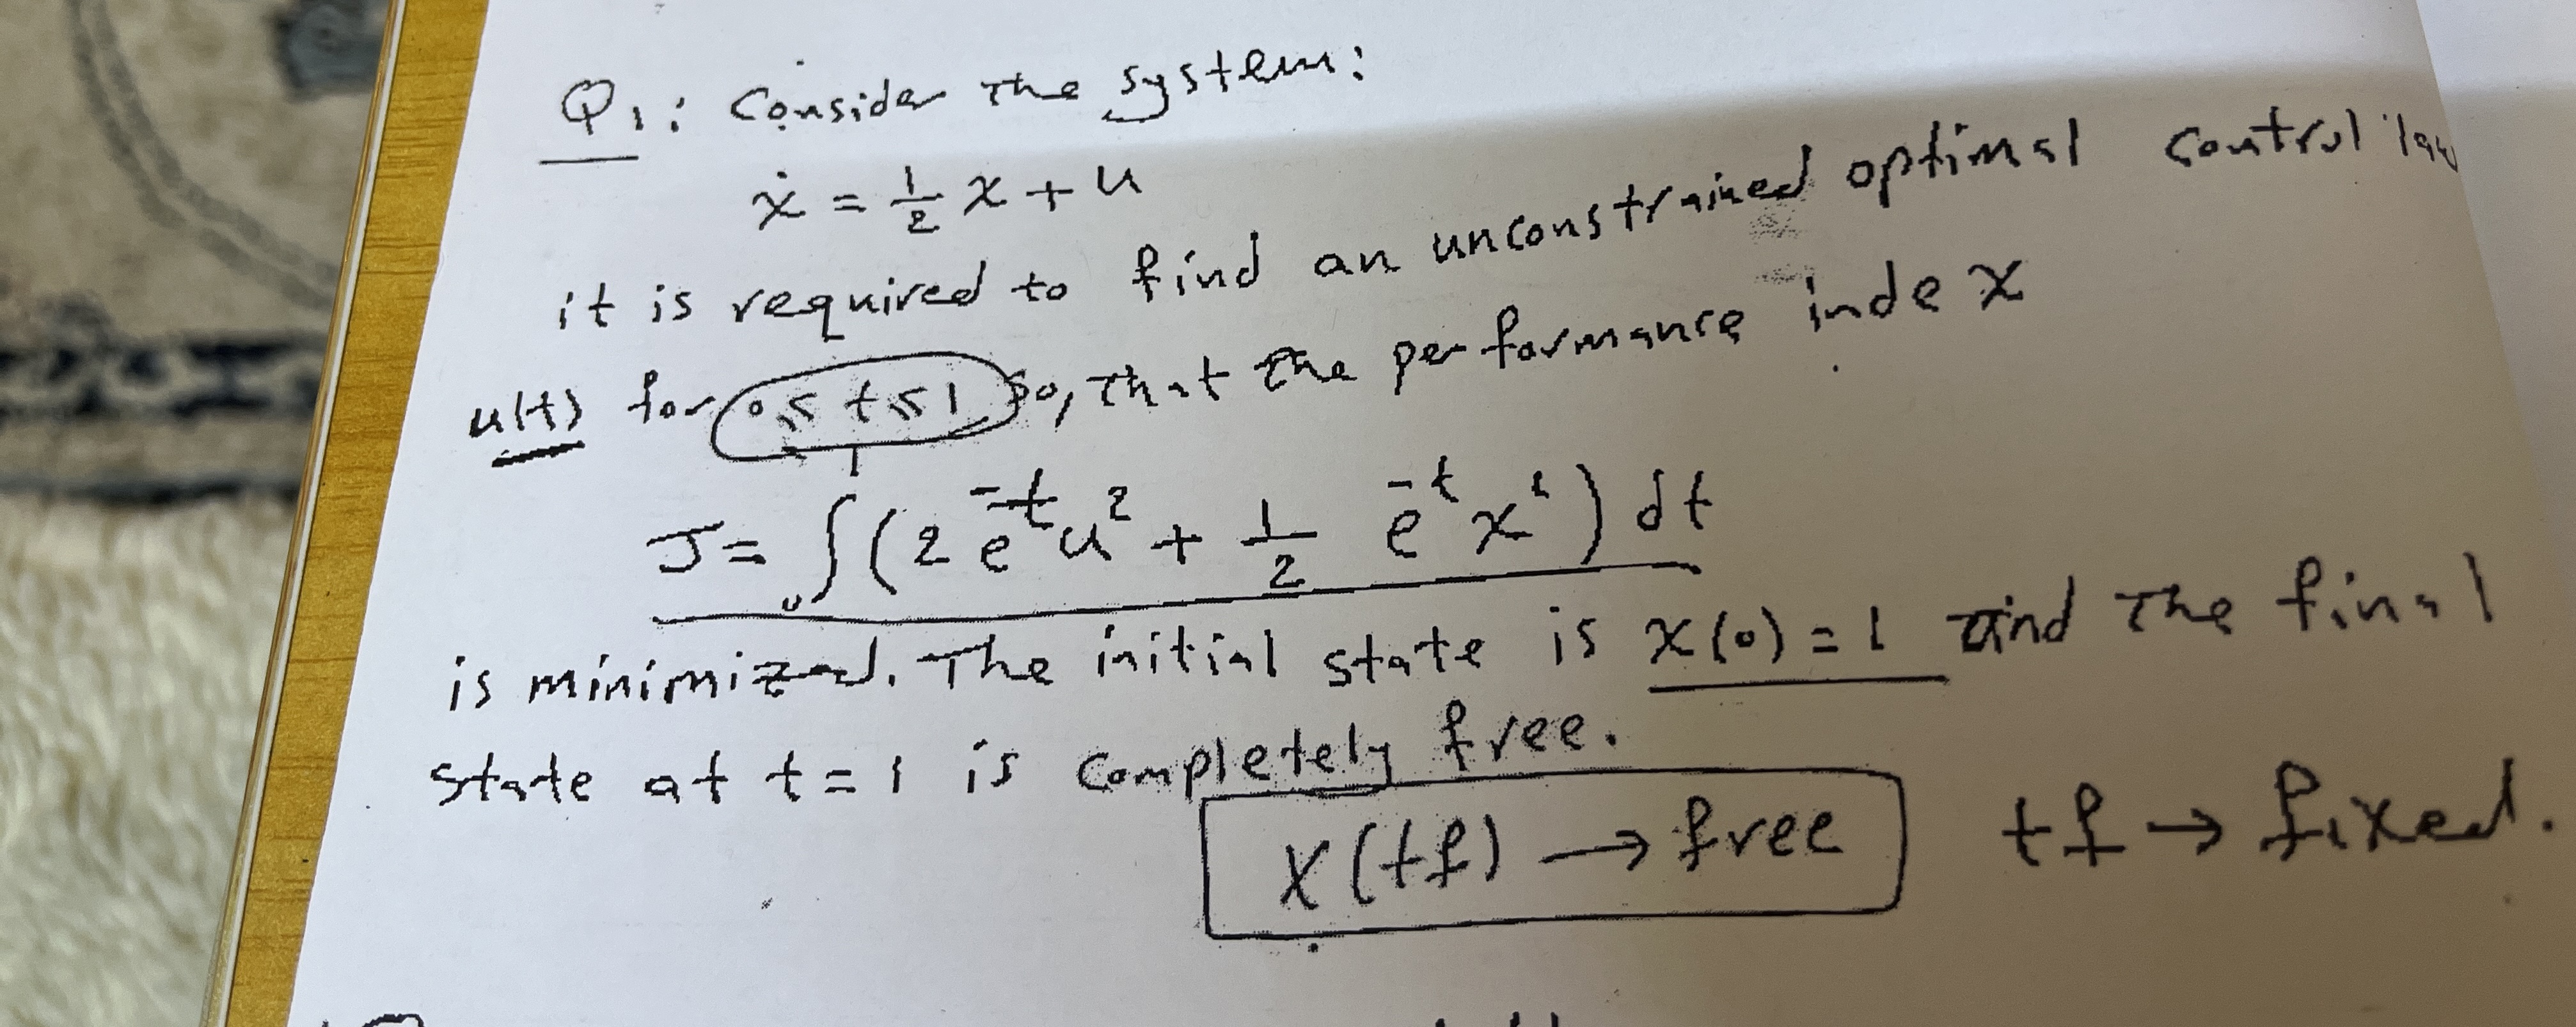 Q1: Consider the system:
ẋ = 1/2 x + u
it is required to find an unconstrained optimal control law
u(t) for 0 ≤ t ≤ 1 so, that the performance index
J = ∫₀¹ (2 e^-t u² + 1/2 e^-t x²) dt
is minimized. The initial state is x(0) = 1 and the final
state at t = 1 is completely free.
x(tf) → free tf → fixed.